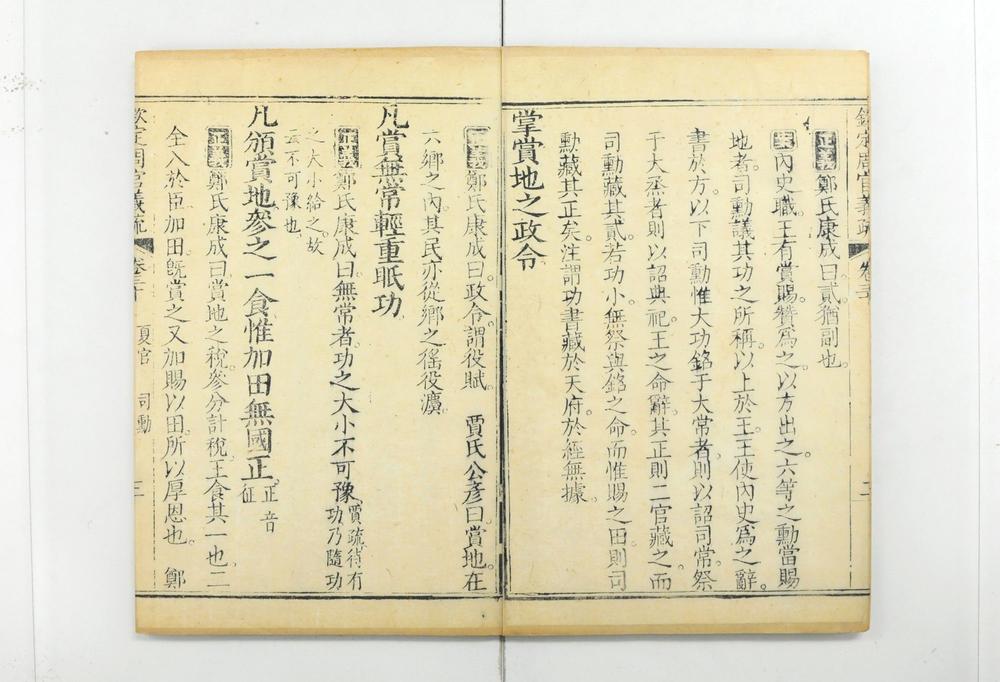 欽定周官義疏 卷三十 二
正義鄭氏康成曰。貳猶副也。
案內史職。王有賞賜。贊爲之。以方出之。六等之勳當賜
地者。司勳議其功之所稱。以上於王。王使內史爲之辭。
書於方。以下司勳。惟大功銘于大常者。則以詔司常。祭
于大烝者。則以詔典祀。王之命辭。其正則二官藏之。而
司勳藏其貳。若功小。無祭與銘之命。而惟賜之田。則司
勳藏其正矣。注謂功書藏於天府。於經無據。
掌賞地之政令
正義鄭氏康成曰。政令。謂役賦。 賈氏公彥曰。賞地。在
六鄉之內。其民亦從鄉之徭役灋。
凡賞無常輕重眡功
正義鄭氏康成曰。無常者。功之大小不可豫。賈疏。待有功乃隨功
之大小給之。故云不可豫也。
凡頒賞地參之一食惟加田無國正。正音征
正義鄭氏康成曰。賞地之稅。參分計稅。王食其一也。二
全入於臣。加田。旣賞之又加賜以田。所以厚恩也。 鄭
欽定周官義疏 卷三十 夏官 司勳 三